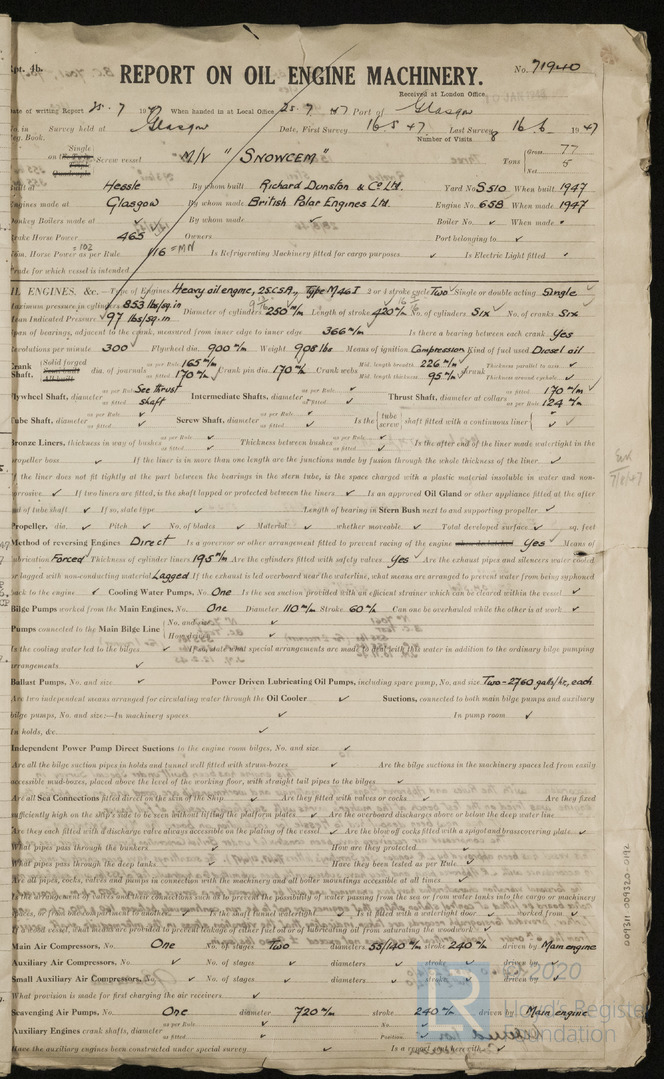 Rpt. 4b.
REPORT ON OIL ENGINE MACHINERY.
No. 71940
Received at London Office
Date of writing Report 25. 7 1947 When handed in at Local Office 25. 7 47 Port of Glasgow
Survey held at Glasgow Date, First Survey 16.5.47 Last Survey 16.6. 1947
Reg. Book. Number of Visits 8
Single
on the Screw vessel M/V "SNOWCEM" Tons Gross 77
Net 5
Built at Hessle By whom built Richard Dunston & Co Ltd. Yard No S510 When built 1947
Engines made at Glasgow By whom made British Polar Engines Ltd. Engine No. 658 When made 1947
Donkey Boilers made at By whom made Boiler No. When made
Brake Horse Power 465 Owners Port belonging to
Nom. Horse Power as per Rule =102 116 =MN Is Refrigerating Machinery fitted for cargo purposes Is Electric Light fitted
Trade for which vessel is intended
II. ENGINES, &c.—Type of Engines Heavy oil engine, 2S.C.S.A., Type M46I 2 or 4 stroke cycle Two Single or double acting Single
Maximum pressure in cylinders 853 lbs/sq.in Diameter of cylinders 250 m/m Length of stroke 420 m/m No. of cylinders Six No. of cranks Six
Mean Indicated Pressure 97 lbs/sq.in
Span of bearings, adjacent to the crank, measured from inner edge to inner edge 366 m/m Is there a bearing between each crank Yes
Revolutions per minute 300 Flywheel dia. 900 m/m Weight 908 lbs Means of ignition Compression Kind of fuel used Diesel oil
Crank Shaft, Solid forged dia. of journals as per Rule 165 m/m as fitted 170 m/m Crank pin dia. 170 m/m Crank webs Mid. length breadth 226 m/m Mid. length thickness 95 m/m Thickness parallel to axis Thickness around eyehole
Flywheel Shaft, diameter as per Rule See thrust as fitted shaft Intermediate Shafts, diameter as per Rule as fitted Thrust Shaft, diameter at collars as fitted 170 m/m as per Rule 124 m/m
Tube Shaft, diameter as per Rule as fitted Screw Shaft, diameter as per Rule as fitted Is the { tube screw } shaft fitted with a continuous liner
Bronze Liners, thickness in way of bushes as per Rule as fitted Thickness between bushes as per Rule as fitted Is the after end of the liner made watertight in the
propeller boss If the liner is in more than one length are the junctions made by fusion through the whole thickness of the liner
If the liner does not fit tightly at the part between the bearings in the stern tube, is the space charged with a plastic material insoluble in water and non-
corrosive If two liners are fitted, is the shaft lapped or protected between the liners Is an approved Oil Gland or other appliance fitted at the after
end of tube shaft If so, state type Length of bearing in Stern Bush next to and supporting propeller
Propeller, dia. Pitch No. of blades Material whether moveable Total developed surface sq. feet
Method of reversing Engines Direct Is a governor or other arrangement fitted to prevent racing of the engine Yes Means of
lubrication Forced Thickness of cylinder liners 19.5 m/m Are the cylinders fitted with safety valves Yes Are the exhaust pipes and silencers water cooled
or lagged with non-conducting material Lagged If the exhaust is led overboard near the waterline, what means are arranged to prevent water from being syphoned
back to the engine Cooling Water Pumps, No. One Is the sea suction provided with an efficient strainer which can be cleared within the vessel
Bilge Pumps worked from the Main Engines, No. One Diameter 110 m/m Stroke 60 m/m Can one be overhauled while the other is at work
Pumps connected to the Main Bilge Line { No. and size How driven
Is the cooling water led to the bilges If so, state what special arrangements are made to deal with this water in addition to the ordinary bilge pumping
arrangements
Ballast Pumps, No. and size Power Driven Lubricating Oil Pumps, including spare pump, No. and size Two-2760 galls/hr, each
Are two independent means arranged for circulating water through the Oil Cooler Suctions, connected to both main bilge pumps and auxiliary
bilge pumps, No. and size:—In machinery spaces In pump room
In holds, &c.
Independent Power Pump Direct Suctions to the engine room bilges, No. and size
Are all the bilge suction pipes in holds and tunnel well fitted with strum-boxes Are the bilge suctions in the machinery spaces led from easily
accessible mud-boxes, placed above the level of the working floor, with straight tail pipes to the bilges
Are all Sea Connections fitted direct on the skin of the Ship Are they fitted with valves or cocks Are they fixed
sufficiently high on the ship's side to be seen without lifting the platform plates Are the overboard discharges above or below the deep water line
Are they each fitted with a discharge valve always accessible on the plating of the vessel Are the blow off cocks fitted with a spigot and brass covering plate
What pipes pass through the bunkers How are they protected
What pipes pass through the deep tanks Have they been tested as per Rule
Are all pipes, cocks, valves and pumps in connection with the machinery and all boiler mountings accessible at all times
Is the arrangement of valves and their connections such as to prevent the possibility of water passing from the sea or from water tanks into the cargo or machinery
spaces, or from one compartment to another Is the shaft tunnel watertight Is it fitted with a watertight door worked from
Main Air Compressors, No. One No. of stages Two diameters 55/140 m/m stroke 240 m/m driven by Main engine
Auxiliary Air Compressors, No. No. of stages diameters stroke driven by
Small Auxiliary Air Compressors, No. No. of stages diameters stroke driven by
What provision is made for first charging the air receivers
Scavenging Air Pumps, No. One diameter 720 m/m stroke 240 m/m driven by Main engine
Auxiliary Engines crank shafts, diameter as per Rule as fitted No. Position
Have the auxiliary engines been constructed under special survey Is a report sent herewith
7/8/47
LR
© 2020
Lloyd's Register
Foundation